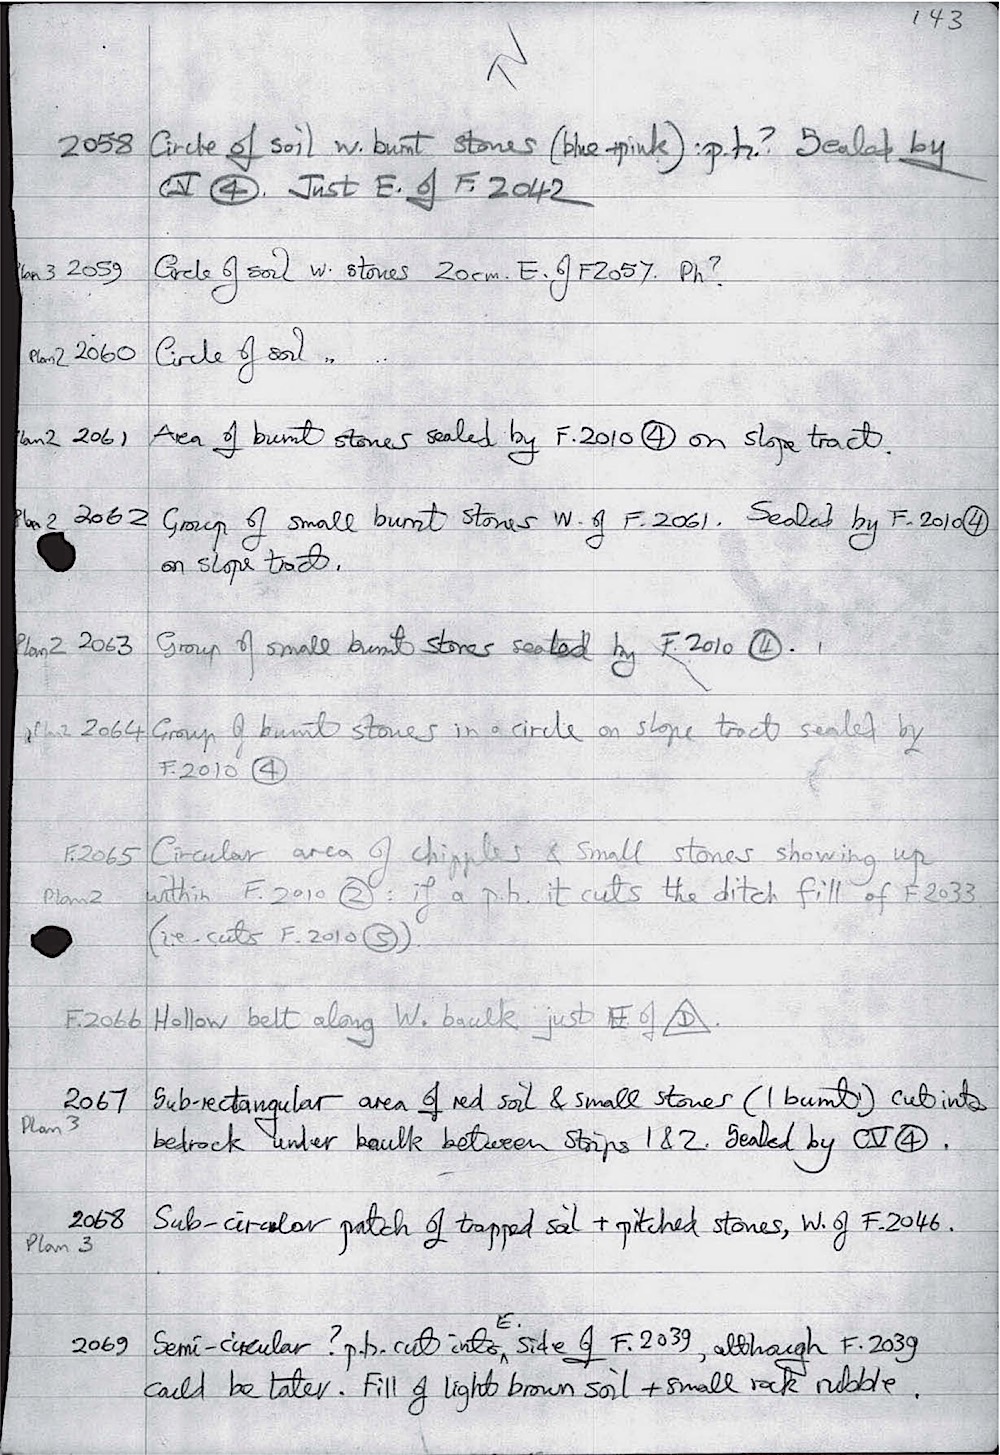 143
N
2058 Circle of soil w. burnt stones (blue + pink) : p.h.? Sealed by
CV ④. Just E. of F. 2042
Plan 3 2059 Circle of soil w. stones 20cm. E. of F2057. Ph?
Plan 2 2060 Circle of soil „ ..
Plan 2 2061 Area of burnt stones sealed by F.2010 ④ on slope tract.
Plan 2 2062 Group of small burnt stones W. of F.2061. Sealed by F.2010④
on slope tract.
Plan 2 2063 Group of small burnt stones sealed by F.2010 ④.
Plan 2 2064 Group of burnt stones in a circle on slope tract sealed by
F.2010 ④
F.2065 Circular area of chipples & small stones showing up
Plan 2 within F.2010 ②: if a p.h. it cuts the ditch fill of F2033
(i.e. cuts F.2010⑤).
F.2066 Hollow belt along W. baulk just E of D.
2067 Sub-rectangular area of red soil & small stones (1 burnt) cut into
Plan 3 bedrock under baulk between strips 1&2. Sealed by CV④.
2068 Sub-circular patch of trapped soil + pitched stones, W. of F.2046.
Plan 3
E.
2069 Semi-circular ? p.h. cut into side of F.2039, although F.2039
could be later. Fill of light brown soil + small rock rubble.